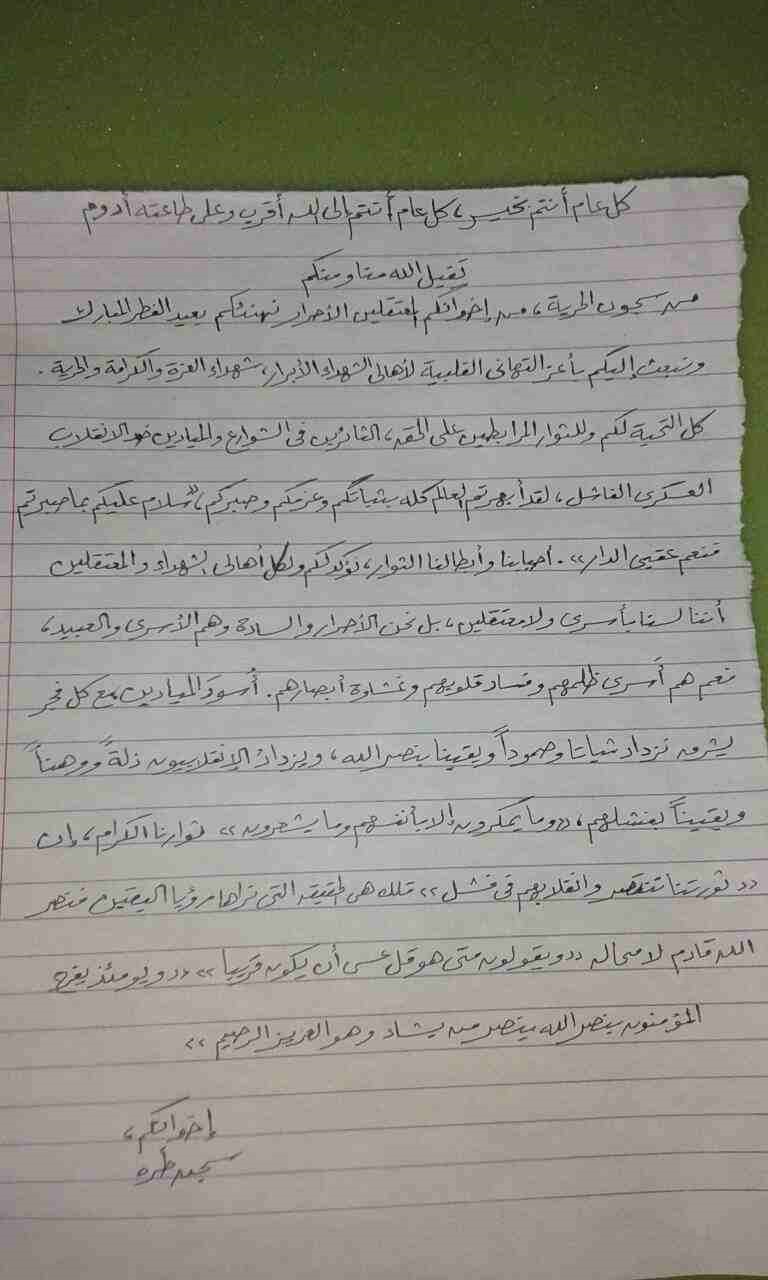 كل عام أنتم بخير، كل عام أنتم إلى الله أقرب وعلى طاعته أدوم
تقبل الله منا ومنكم
من سجون الحرية، من إخوانكم المعتقلين الأحرار نهنئكم بعيد الفطر المبارك
ونبعث إليكم بأعز التهانى القلبية لأهالى الشهداء الأبرار، شهداء العزة والكرامة والحرية.
كل التحية لكم وللثوار المرابطين على الحق، الثائرين فى الشوارع والميادين ضد الانقلاب
العسكرى الفاشل، لقد أبهرتم العالم كله بثباتكم وعزمكم وصبركم، "سلام عليكم بما صبرتم
فنعم عقبى الدار". أحبابنا وأبطالنا الثوار، نؤكد لكم ولكل أهالى الشهداء والمعتقلين
أننا لسنا بأسرى ولا معتقلين، بل نحن الأحرار والسادة وهم الأسرى والعبيد،
نعم هم أسرى ظلمهم وفساد قلوبهم وغشاوة أبصارهم. أسودَ الميادين، مع كل فجر
يشرق نزداد ثباتا وصموداً ويقينا بنصر الله، ويزداد الإنقلابيون ذلةً ووهناً
ويقيناً بفشلهم، "وما يمكرون إلا بأنفسهم وما يشعرون" ثوارنا الكرام، إن
"ثورتنا تنتصر وانقلابهم فى فشل" تلك هى الحقيقة التى نراها رؤيا اليقين فنصر
الله قادم لا محاله "ويقولون متى هو قل عسى أن يكون قريبا"، "ويومئذ يفرح
المؤمنون بنصر الله ينصر من يشاء وهو العزيز الرحيم"
إخوانكم،
سجن طره